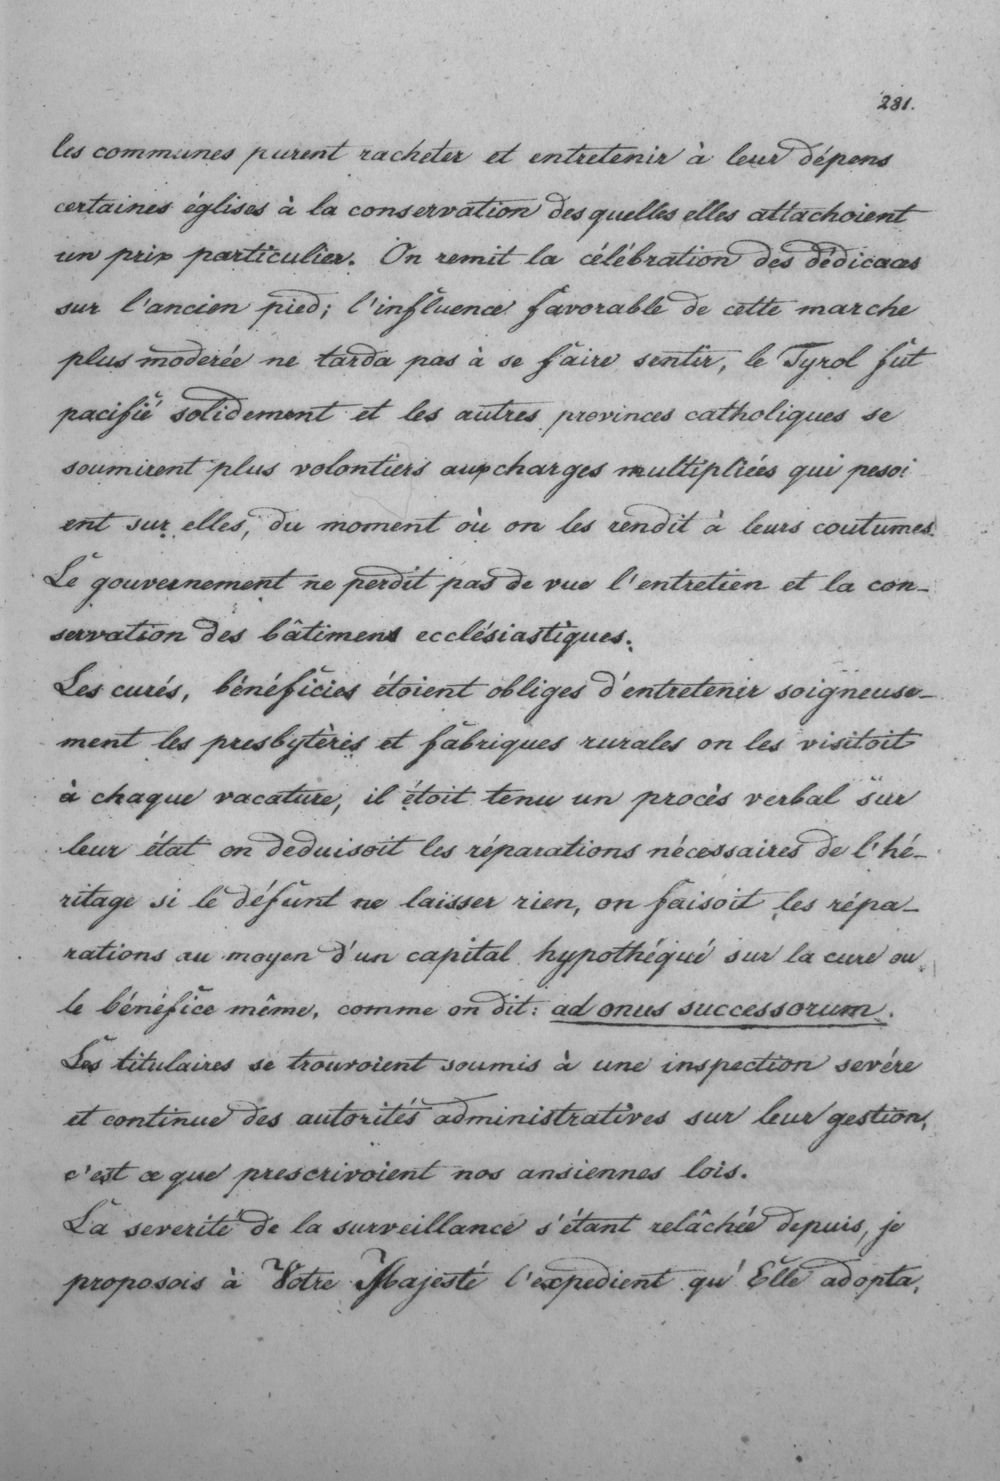 281.
les communes purent racheter et entretenir à leur dépens
certaines églises à la conservation des quelles elles attachoient
un prix particulier. On remit la célébration des dédicaces
sur l'ancien pied; l'influence favorable de cette marche
plus moderée ne tarda pas à se faire sentir, le Tyrol fut
pacifié solidement et les autres provinces catholiques se
soumirent plus volontiers aux charges multipliées qui pesoi
ent sur elles, du moment où on les rendit à leurs coutumes.
Le gouvernement ne perdit pas de vue l'entretien et la con-
servation des bâtimens ecclésiastiques.
Les curés, bénéficies étoient obliges d'entretenir soigneuse-
ment les presbytères et fabriques rurales on les visitoit
à chaque vacature, il étoit tenu un procès verbal sur
leur état on deduisoit les réparations nécessaires de l'hé-
ritage si le défunt ne laisser rien, on faisoit les répa-
rations au moyen d'un capital hypothéqué sur la cure ou
le bénéfice même, comme on dit: ad onus successorum.
Les titulaires se trouvoient soumis à une inspection sevére
et continue des autorités administratives sur leur gestion,
c'est ce que prescrivoient nos ansiennes lois.
La severité de la surveillance s'étant relâchée depuis, je
proposois à Votre Majesté l'expedient qu'Elle adopta,